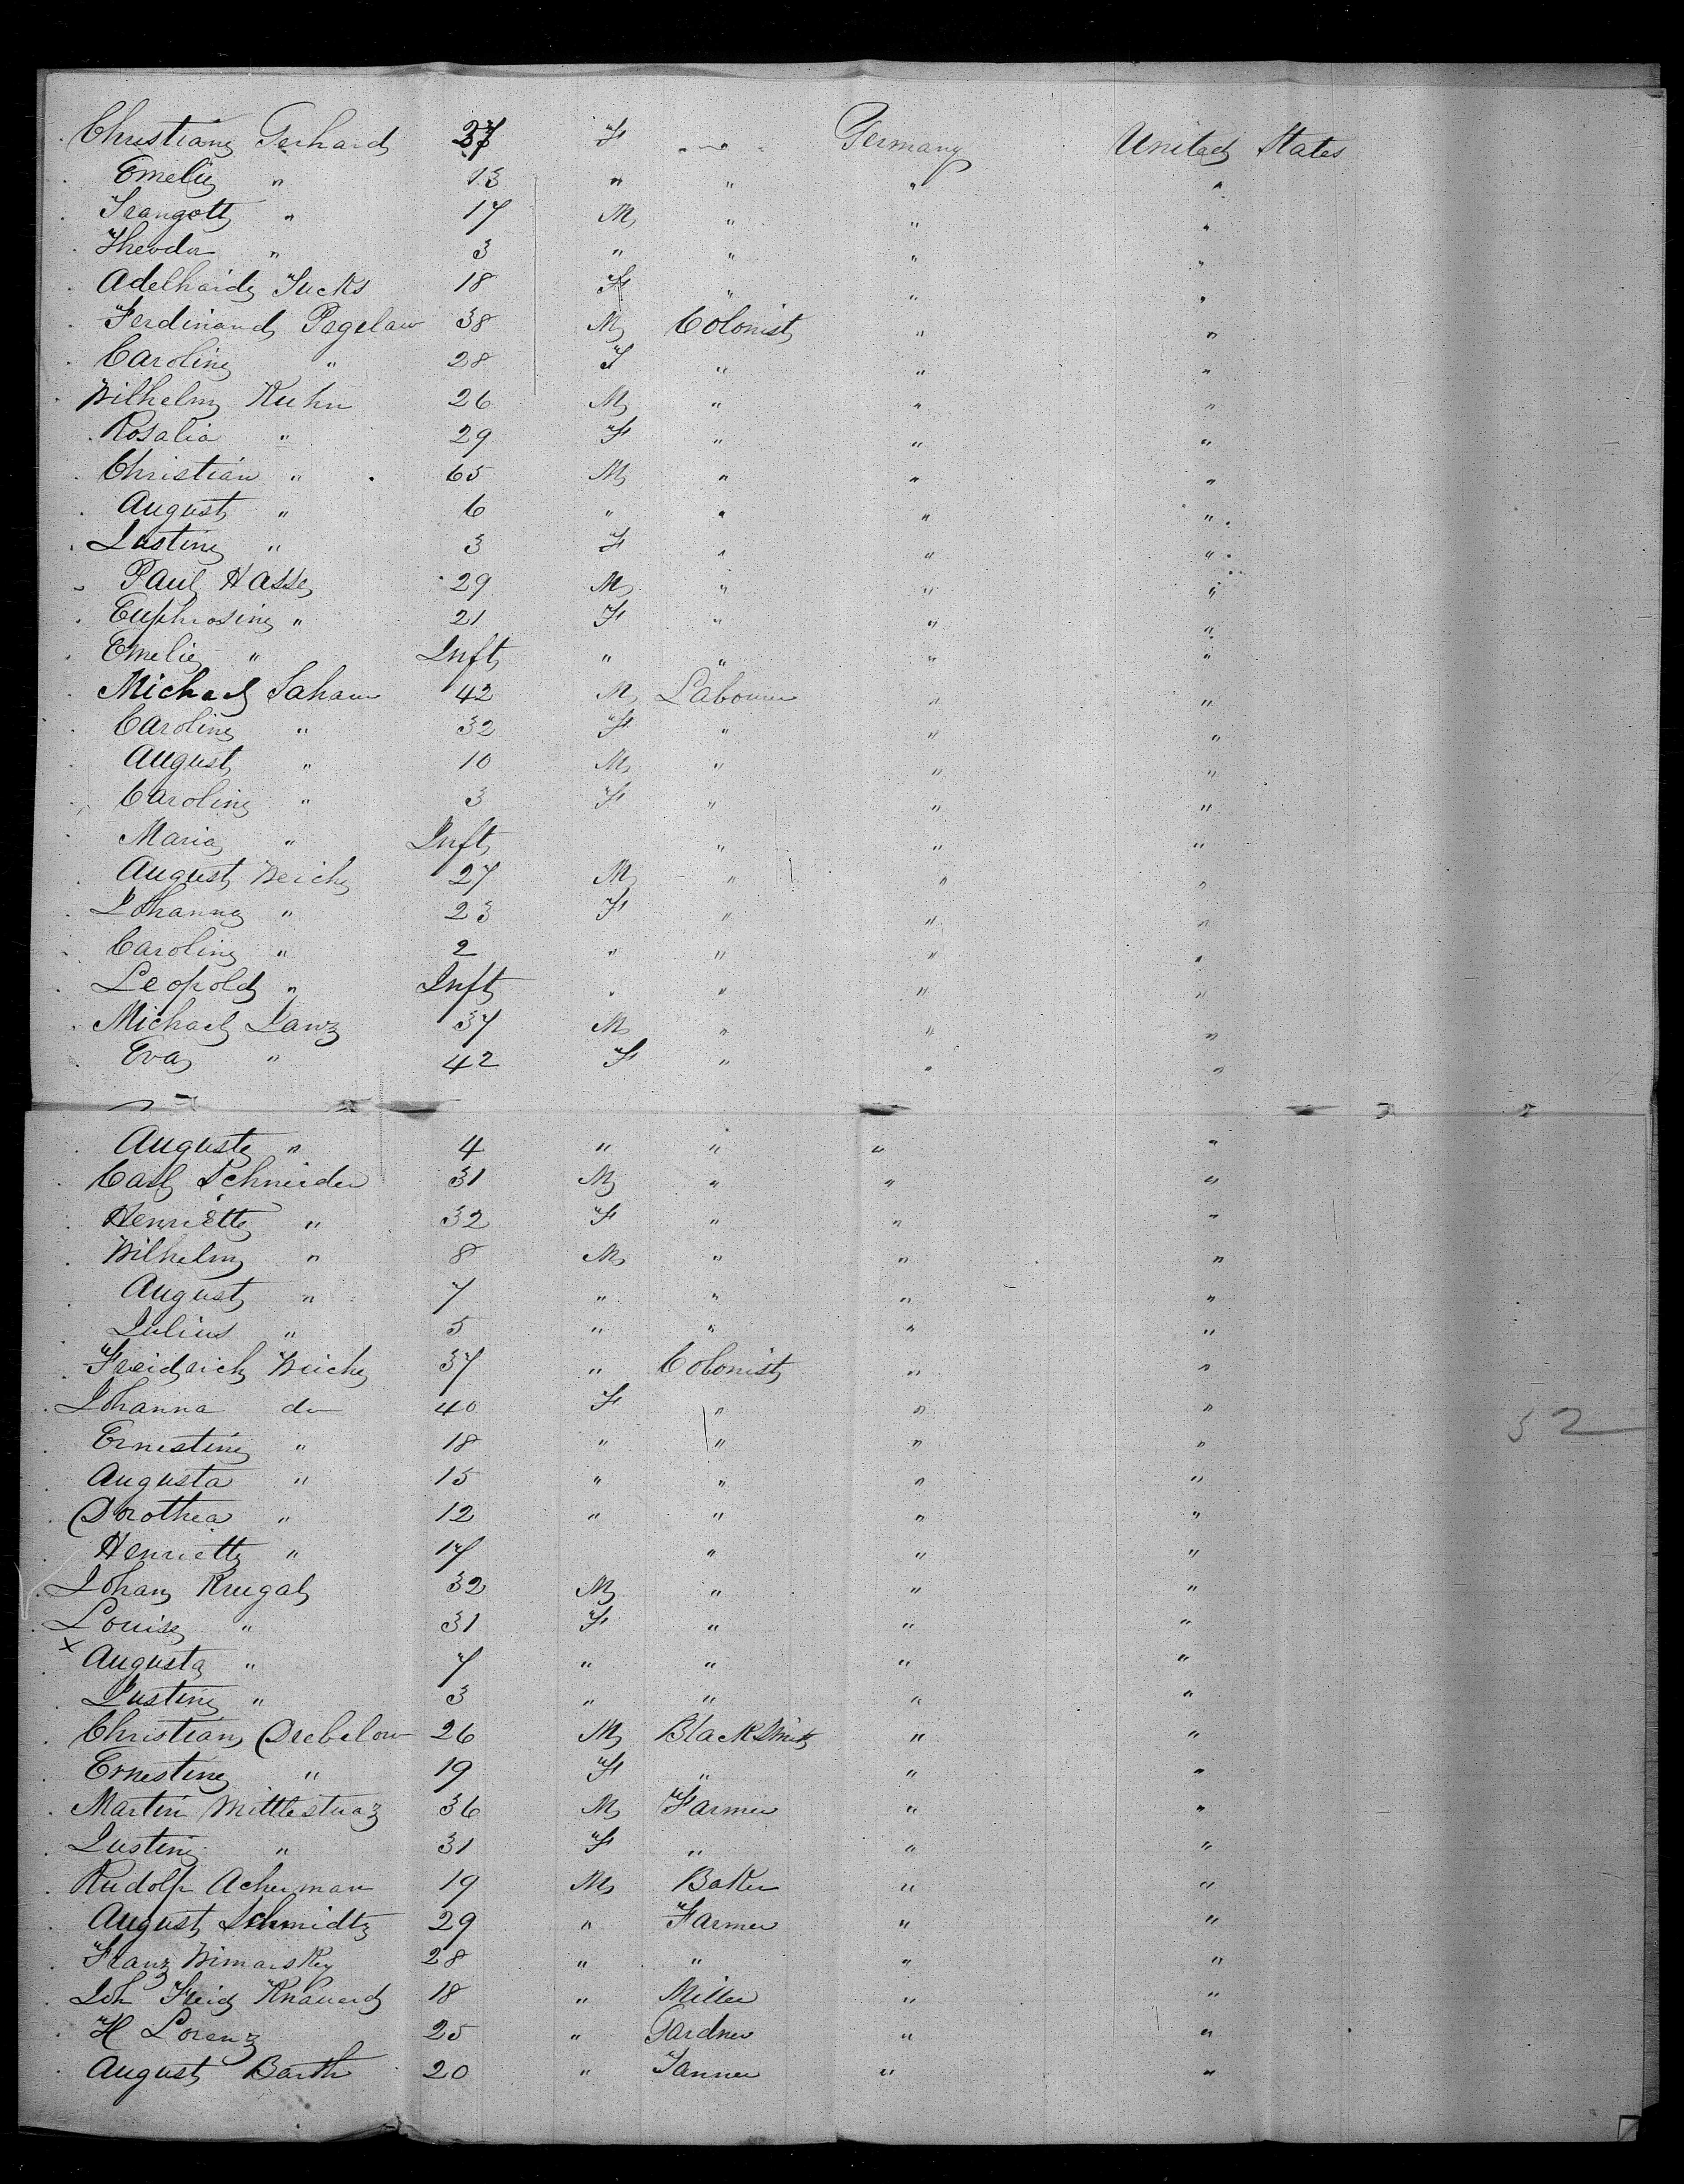 Christiane Gerhard 37 F " Germany United States
Emelie " 13 " " " "
Traugott " 17 M " " "
Theodor " 3 " " " "
Adelhaide Fucks 18 F " " "
Ferdinand Pegelaw 38 M Colonist " "
Caroline " 28 F " " "
Wilhelm Kuhn 26 M " " "
Rosalia " 29 F " " "
Christian " 65 M " " "
August " 6 " " " "
Justine " 3 F " " "
Paul Hasse 29 M " " "
Euphrosine " 21 F " " "
Emelie " Inft " " " "
Michael Saham 42 M Labourer " "
Caroline " 32 F " " "
August " 10 M " " "
Caroline " 3 F " " "
Maria " Inft " " "
August Weich 27 M " " "
Johanna " 23 F " " "
Caroline " 2 " " " "
Leopold " Inft " " " "
Michael Janz 37 M " " "
Eva " 42 F " " "
Auguste " 4 " " " "
Carl Schneider 31 M " " "
Henriette " 32 F " " "
Wilhelm " 8 M " " "
August " 7 " " " "
Julius " 5 " " " "
Freidrich Weich 37 " Colonist " "
Johanna do 40 F " " "
Ernestine " 18 " " " "
Augusta " 15 " " " "
Dorothea " 12 " " " "
Henriette " 17 " " "
Johan Krugal 32 M " " "
Louise " 31 F " " "
x Augusta " 7 " " " "
Justine " 3 " " " "
Christian Drebelow 26 M BlackSmith " "
Ernestine " 19 F " " "
Martin Mittlestuaz 36 M Farmer " "
Justine " 31 F " " "
Rudolf Acherman 19 M Baker " "
August Schmidtz 29 " Farmer " "
Franz Wimarskey 28 " " " "
Joh Freid Knauerd 18 " Miller " "
H Lorenz 25 " Gardner " "
August Barth 20 " Tanner " "
52